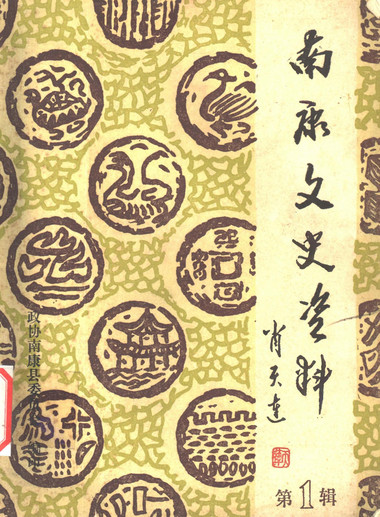 南康文史资料
肖天连
第1辑
政协南康县委